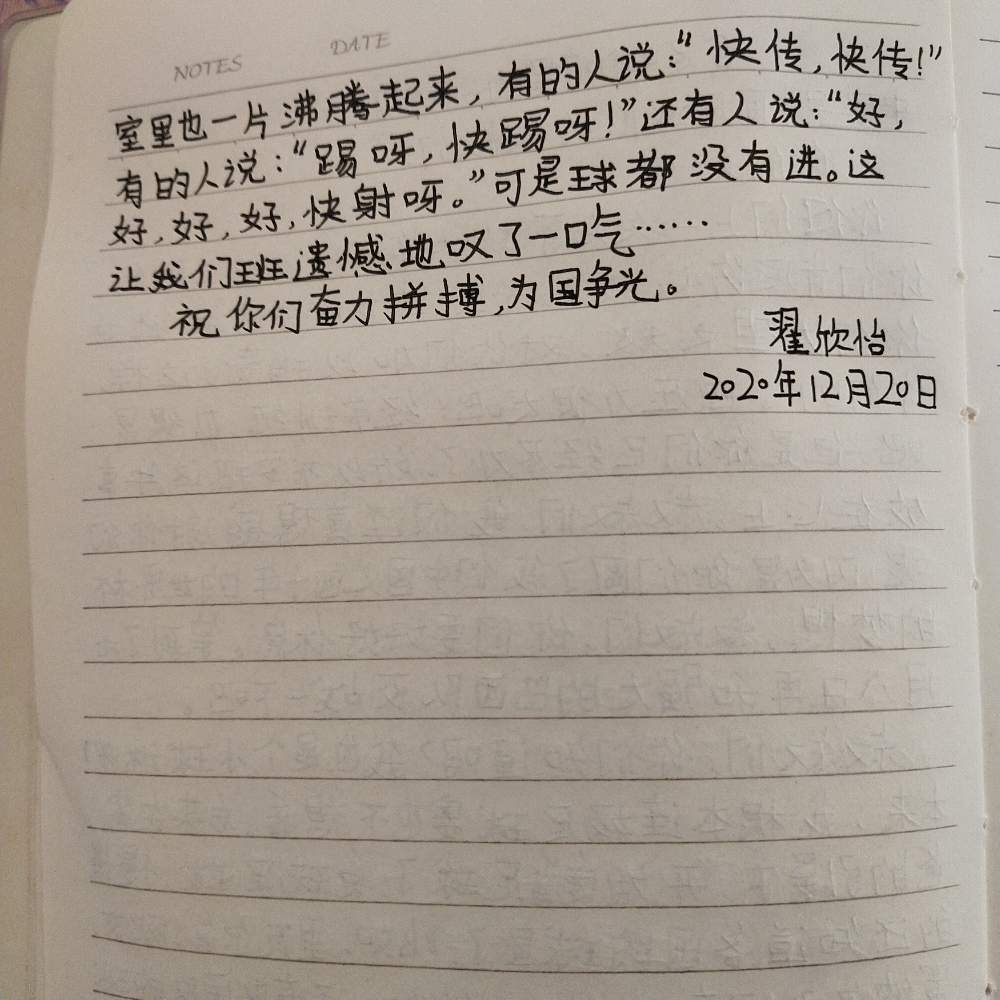 NOTES
DATE
室里也一片沸腾起来，有的人说：“快传，快传！”
有的人说：“踢呀，快踢呀！”还有人说：“好，
好，好，好，快射呀。”可是球都没有进。这
让我们班遗憾地叹了一口气……
祝你们奋力拼搏，为国争光。
翟欣怡
2020年12月20日